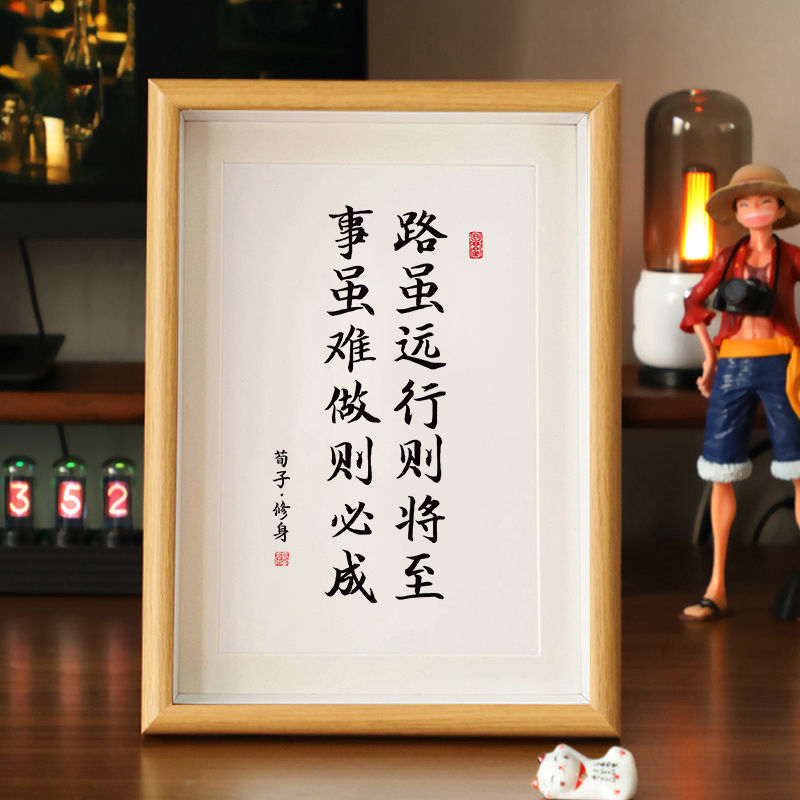 路虽远行则将至
事虽难做则必成
荀子·修身
352